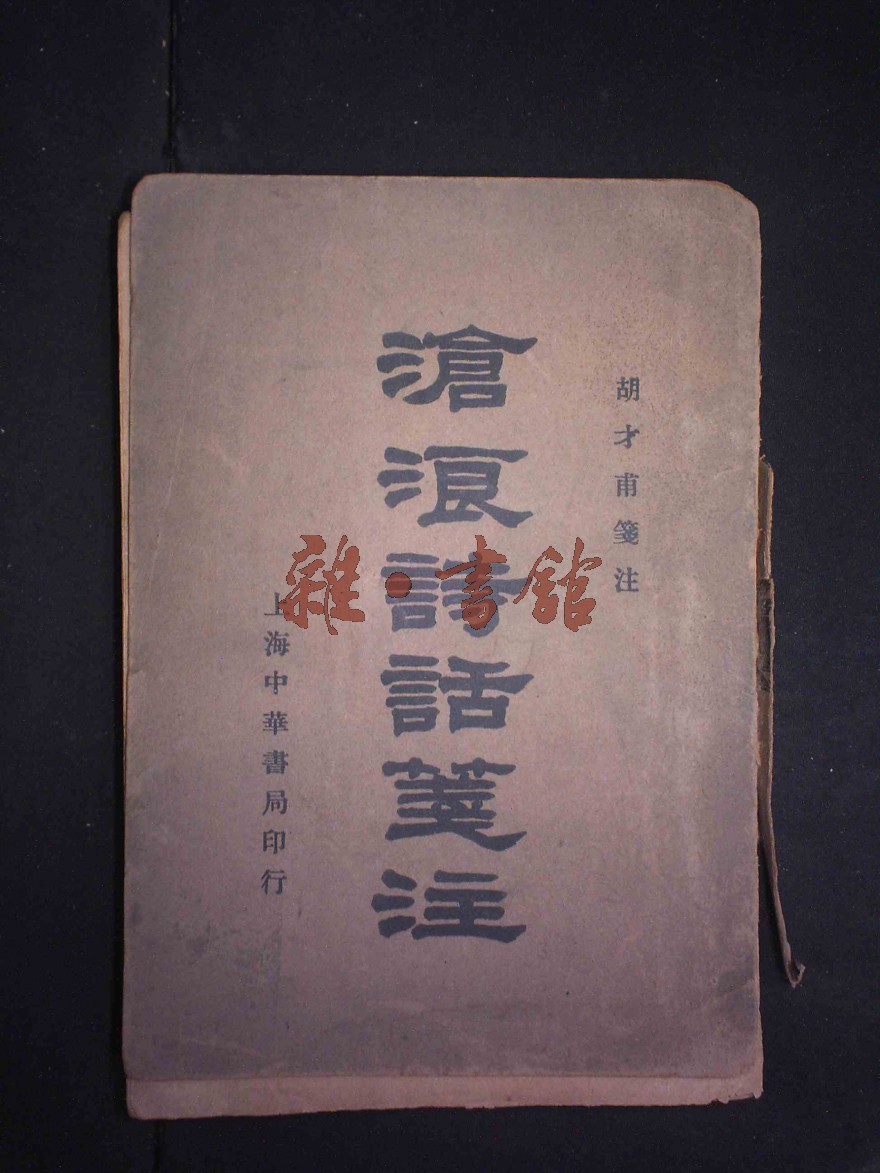 胡才甫箋注
滄浪詩話箋注
上海中華書局印行
雜·書館